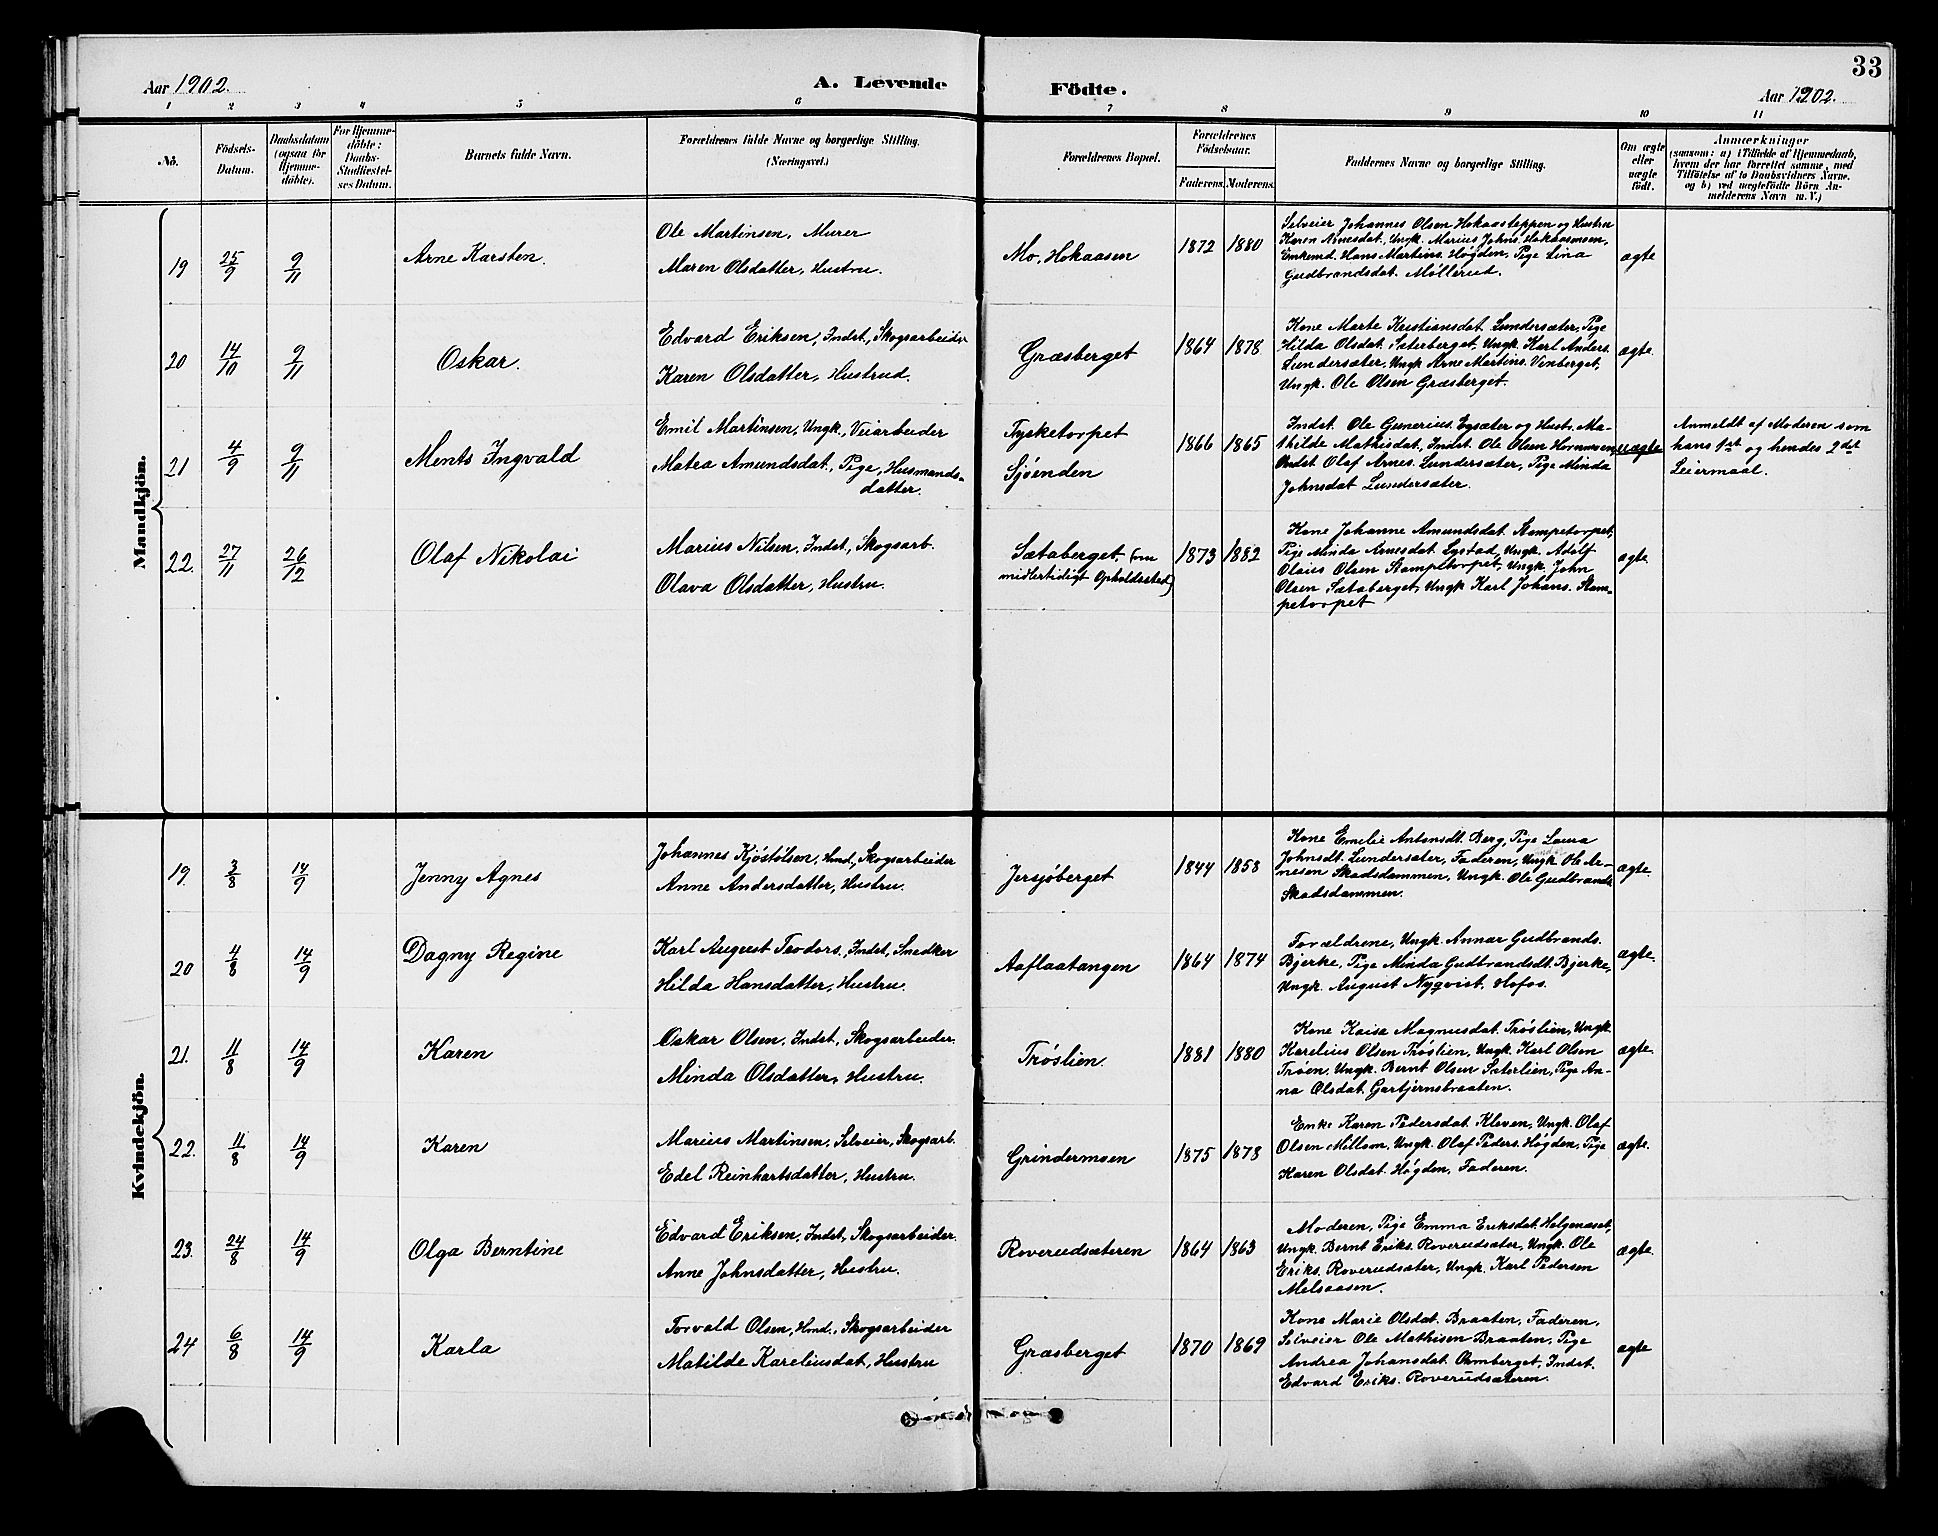 33
Aar 1902.
A. Levende Födte.
Aar 1902.
1 2 3 4 5 6 7 8 9 10 11
No.
Födsels-
Datum.
Daabsdatum
(ogsaa for
Hjemme-
döbte).
For Hjemme-
döbte:
Daabs-
Stadfæstel-
ses Datum.
Barnets fulde Navn.
Forældrenes fulde Navne og borgerlige Stilling.
(Næringsvei.)
Forældrenes Bopæl.
Forældrenes
Födselsaar.
Faderens. Moderens.
Faddernes Navne og borgerlige Stilling.
Om ægte
eller
uægte
födt.
Anmærkninger
(saasom: a) i Tilfælde af Hjemmedaab,
hvem der har forrettet samme, med
Tilföielse af to Daabsvidners Navne.
og b) ved uægtefödte Börn An-
melderens Navn m. V.)
Mandkjön.
19 25/9 9/11 Arne Karsten.
Ole Martinsen, Murer
Maren Olsdatter, Hustru.
Mo, Hokaasen
1872 1880
Selveier Johannes Olsen Hokaasteppen og Hustru
Karen Arnesdat., Ungk. Marius Johns. Hokaasmoen,
Enkemd. Hans Martins. Høgden, Pige Lina
Gudbrandsdat. Møllerud.
ægte
20 14/10 9/11 Oskar.
Edvard Eriksen, Indst., Skogsarbeider
Karen Olsdatter, Hustrud.
Græsberget
1864 1878
Kone Marte Kristiansdat. Lundersæter, Pige
Hilda Olsdat. Sæterberget, Ungk. Karl Anders.
Lundersæter, Ungk Arne Martins. Venberget,
Ungk. Ole Olsen Græsberget.
ægte.
21 4/9 9/11 Ments Ingvald
Emil Martinsen, Ungk., Veiarbeider
Matea Amundsdat., Pige, Husmands-
datter.
Tysketorpet
Sjøenden
1866 1865
Indst. Ole Gunerius. Lysæter og Hustr. Ma-
thilde Mathisdat., Indst. Ole Olsen
Indst. Olaf Arnes. Lundersæter, Pige Minda
Johnsdat Lundersæter.
uægte
Anmeldt af Moderen som
hans 1st og hendes 2det
Leiermaal.
22. 27/11 26/12 Olaf Nikolai
Marius Nilsen, Indst., Skogsarb.
Olava Olsdatter, Hustru.
Sætaberget, (nu
midlertidigt Opholdssted)
1873 1882
Kone Johanne Amundsdat. Stampetorpet,
Pige Minda Arnesdat. Lystad, Ungk. Adolf
Olaus Olsen Stampetorpet, Ungk. John
Olsen Sætaberget, Ungk Karl Johans. Stam-
petorpet
ægte.
Kvindekjön.
19. 3/8 14/9 Jenny Agnes
Johannes Kjøstølsen, Hmd, Skogsarbeider
Anne Andersdatter, Hustru.
Jersjøberget
1844 1858
Kone Emelie Antonsdt. Berg, Pige Laura
Johnsdt. Lundersæter, Faderen, Ungk Ole Ar-
nesen Skadsdammen, Ungk. Ole Gudbrands
Skadsdammen.
ægte.
20 4/8 14/9 Dagny Regine
Karl August Teodors., Indst., Snedker
Hilda Hansdatter, Hustru.
Aaflaatangen
1864 1874
Forældrene, Ungk. Annar Gudbrands.
Bjerke, Pige Minda Gudbrandsdt. Bjerke,
Ungk. August Nyqvist, Hofos.
ægte.
21. 11/8 14/9 Karen
Oskar Olsen, Indst., Skogsarbeider.
Minda Olsdatter, Hustru.
Trøslien.
1881 1880
Kone Kaisa Magnusdat. Trøslien, Ungk
Karelius Olsen Trøslien, Ungk. Karl Olsen
Trøen, Ungk. Bernt Olsen Sæterlien, Pige An-
na Olsdat. Gartjernsbraaten.
ægte.
22. 11/8 14/9 Karen
Marius Martinsen, Selveier, Skogsarb.
Edel Reinhartsdatter, Hustru.
Grindermoen
1875 1878
Enke Karen Pedersdat. Kleven, Ungk. Olaf
Olsen Millom, Ungk. Olaf Peders. Høgden, Pige
Karen Olsdat. Høgden, Faderen.
ægte.
23. 24/8 14/9 Olga Berntine
Edvard Eriksen, Indst., Skogsarbeider.
Anne Johnsdatter, Hustru.
Roverudsæteren
1864 1863
Moderen, Pige Emma Eriksdat. Helgenaset,
Ungk. Bernt Eriks. Roverudsæter, Ungk. Ole
Eriks. Roverudsæter, Ungk. Karl Pedersen
Melsaasen.
ægte.
24 6/8 14/9 Karla
Torvald Olsen, Hmd., Skogsarbeider
Matilde Kareliusdat, Hustru
Græsberget
1870 1869
Kone Marie Olsdat. Braaten, Faderen,
Selveier Ole Mathisen Braaten, Pige
Andrea Johansdat. Ormberget, Indst.
Edvard Eriks. Roverudsæteren.
ægte